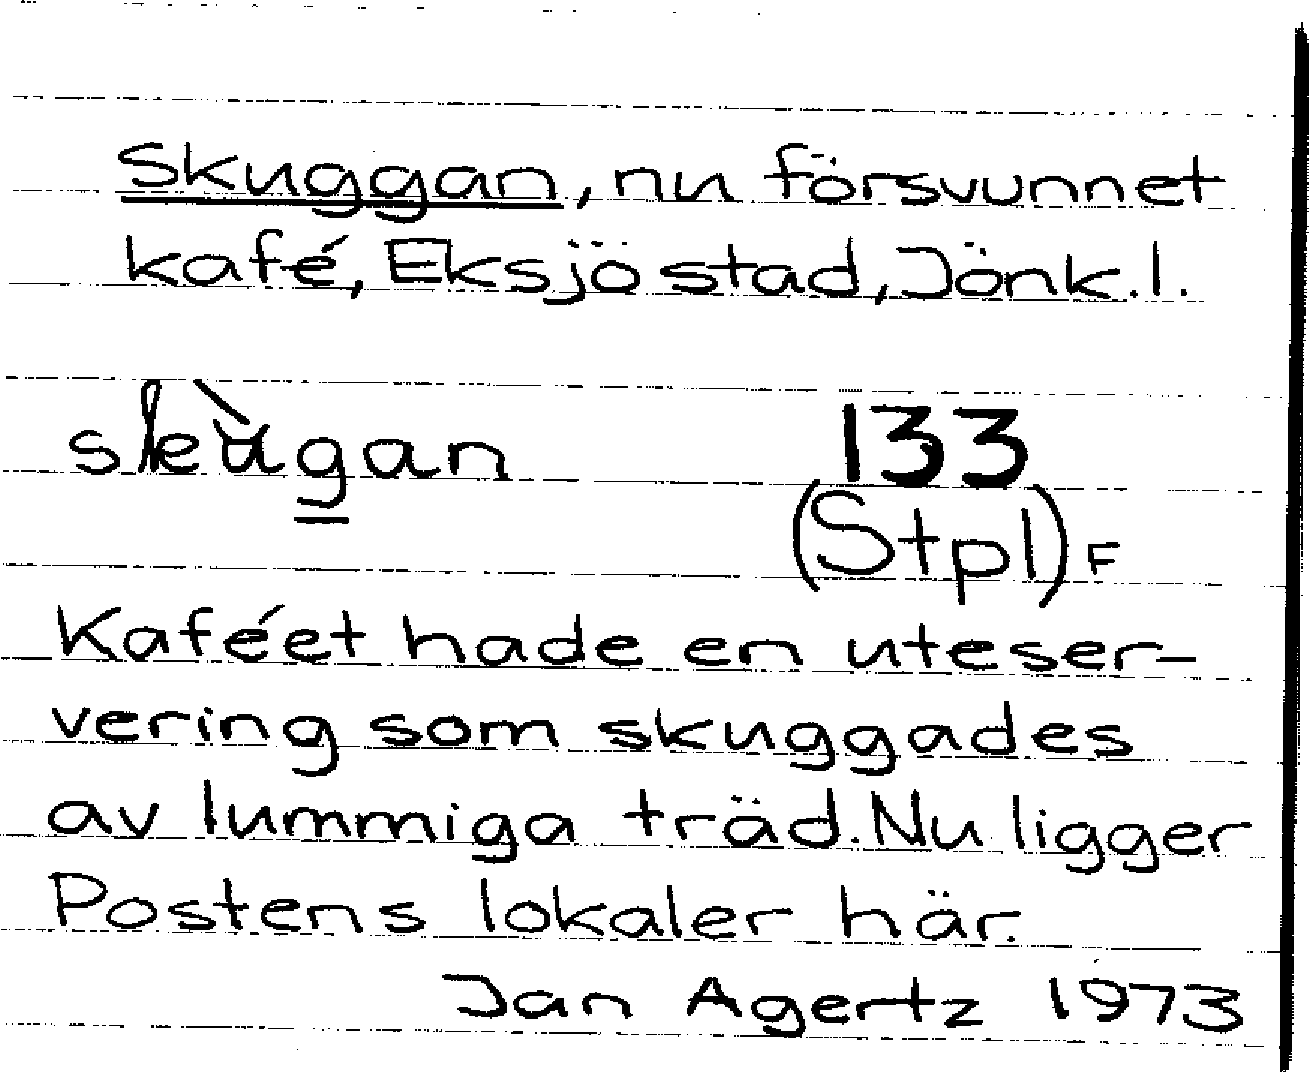 Skuggan, nu försvunnet
kafé, Eksjö stad, Jönk.l.
skùgan 133
(Stpl)F
Kaféet hade en uteser-
vering som skuggades
av lummiga träd. Nu ligger
Postens lokaler här.
Jan Agertz 1973